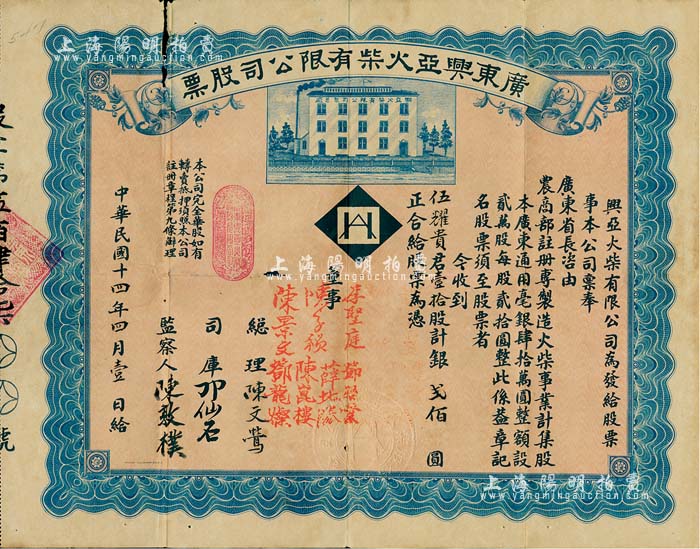 上海陽明拍賣
www.yangmingauction.com
廣東興亞火柴有限公司股票
興亞火柴有限公司為發給股票
事本公司票奉
廣東省長咨由
農商部註册專製造火柴事業計集股
本廣東通用毫銀肆拾萬圓整額設
貳萬股每股貳拾圓整此係蓋章記
名股票須至股票者
今收到
伍耀貴君壹拾股計銀 弍佰 圓
正合給股票為憑
董事
李聖庭
陳景文
總理 陳文鶯
司庫 卭仙石
監察人 陳敬樸
本公司完全華股如有
轉賣抵押須照本公司
註册章程第九條辦理
中華民國十四年四月壹日給
第伍百肆拾柒號
上海陽明拍賣
www.yangmingauction.com
上海陽明拍賣
www.yangmingauction.com